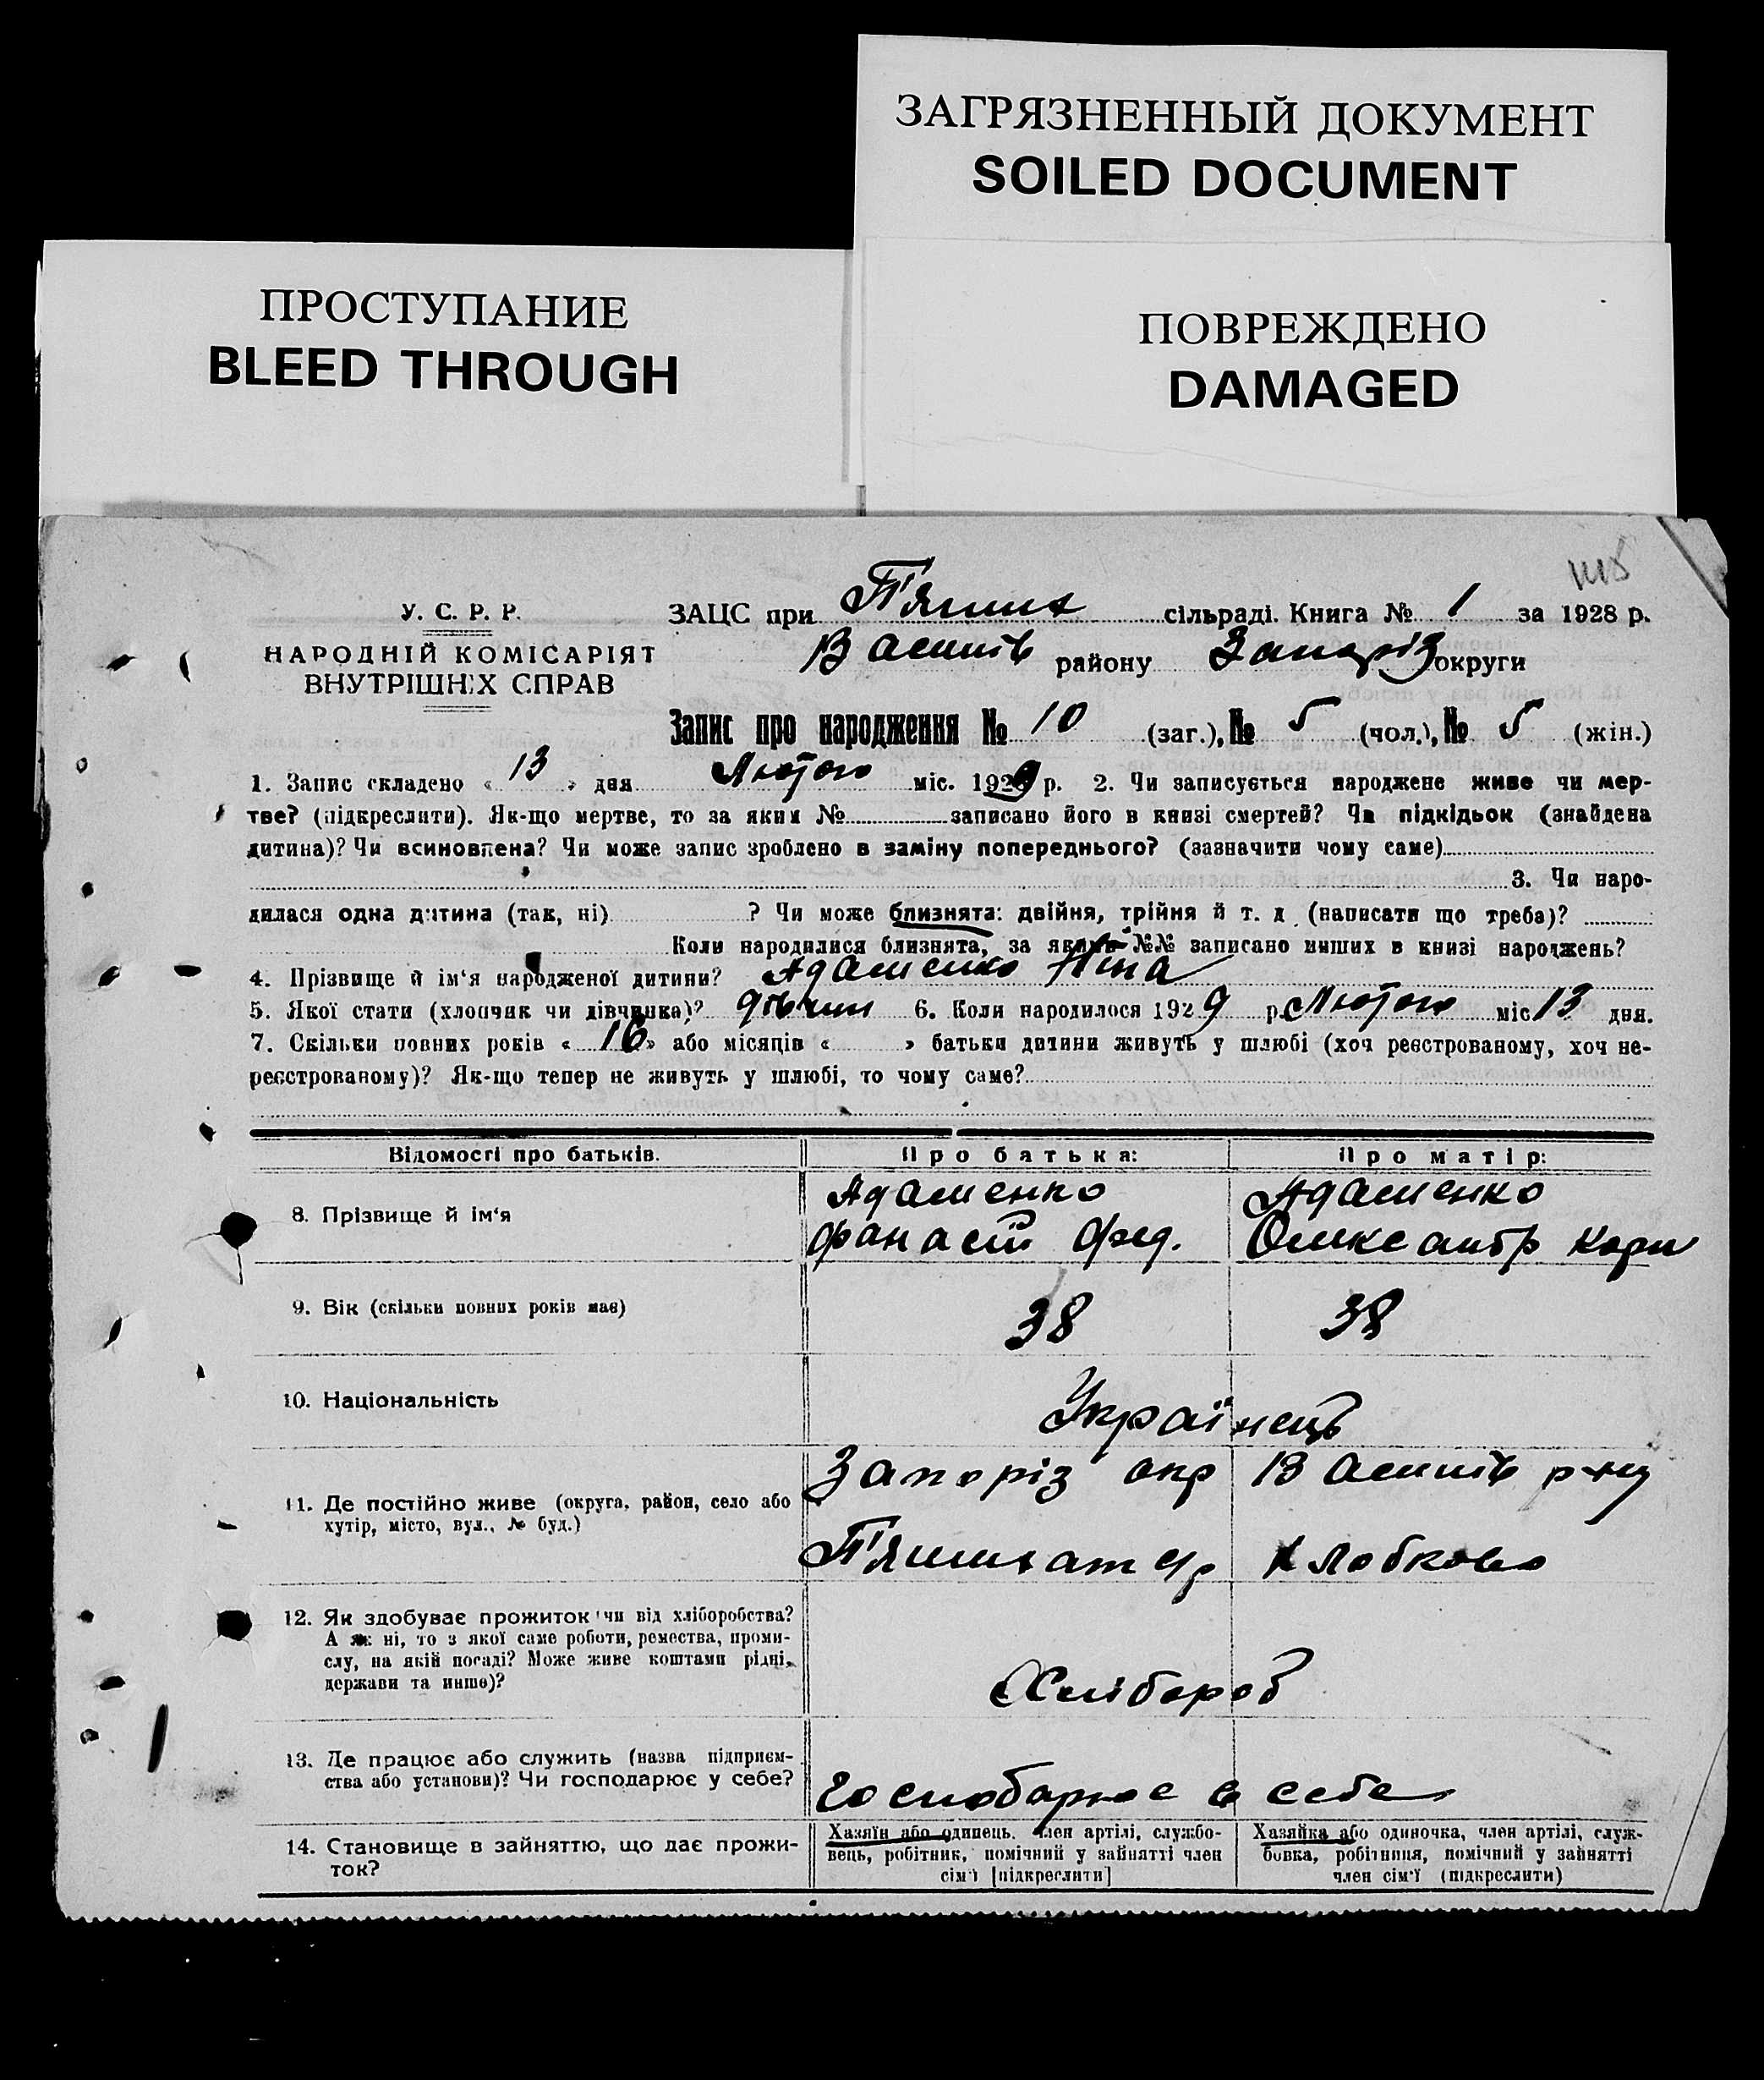 ЗАГРЯЗНЕННЫЙ ДОКУМЕНТ
SOILED DOCUMENT
ПРОСТУПАНИЕ
BLEED THROUGH
ПОВРЕЖДЕНО
DAMAGED
У. С. Р. Р.
НАРОДНІЙ КОМІСАРІЯТ
ВНУТРІШНІХ СПРАВ
ЗАЦС при сільраді. Книга № 1 за 1928 р.
Василів району Запоріз округи
Запис про народження № 10 (заг.), № 5 (чол.), № 5 (жін.)
1. Запис складено « 13 » дня Лютого міс. 1929 р. 2. Чи записується народжене живе чи мер-
тве? (підкреслити). Як-що мертве, то за яким № записано його в книзі смертей? Чи підкідьок (знайдена
дитина)? Чи всиновлена? Чи може запис зроблено в заміну попереднього? (зазначити чому саме)
3. Чи наро-
дилася одна дитина (так, ні) ? Чи може близнята: двійня, трійня й т. д. (написати що треба)?
Коли народилися близнята, за якими №№ записано инших в книзі народжень?
4. Прізвище й ім‘я народженої дитини? Адаменко Ніна
5. Якої стати (хлопчик чи дівчинка)? дівчин 6. Коли народилося 1929 р. Лютого міс 13 дня.
7. Скільки повних років « 16 » або місяців « » батьки дитини живуть у шлюбі (хоч реєстрованому, хоч не-
реєстрованому)? Як-що тепер не живуть у шлюбі, то чому саме?
Відомості про батьків. Про батька: Про матір:
8. Прізвище й ім‘я Адаменко Адаменко
фанасій Фед. Олександр Карп
9. Вік (скільки повних років має) 38 38
10. Національність Українець
11. Де постійно живе (округа, район, село або Запоріз окр Василів р-ну
хутір, місто, вул., № буд.)
12. Як здобуває прожиток чи від хліборобства?
А як ні, то з якої саме роботи, ремества, проми-
слу, на якій посаді? Може живе коштами рідні,
держави та инше)? Хлібороб
13. Де працює або служить (назва підприєм-
ства або установи)? Чи господарює у себе? Господарює в себе
14. Становище в зайняттю, що дає прожи-
ток?
Хазяїн або одинець. член артілі, службо-
вець, робітник, помічний у зайнятті член
сім‘ї [підкреслити]
Хазяйка або одиночка, член артілі, служ-
бовка, робітниця, помічний у зайнятті
член сім‘ї (підкреслити)